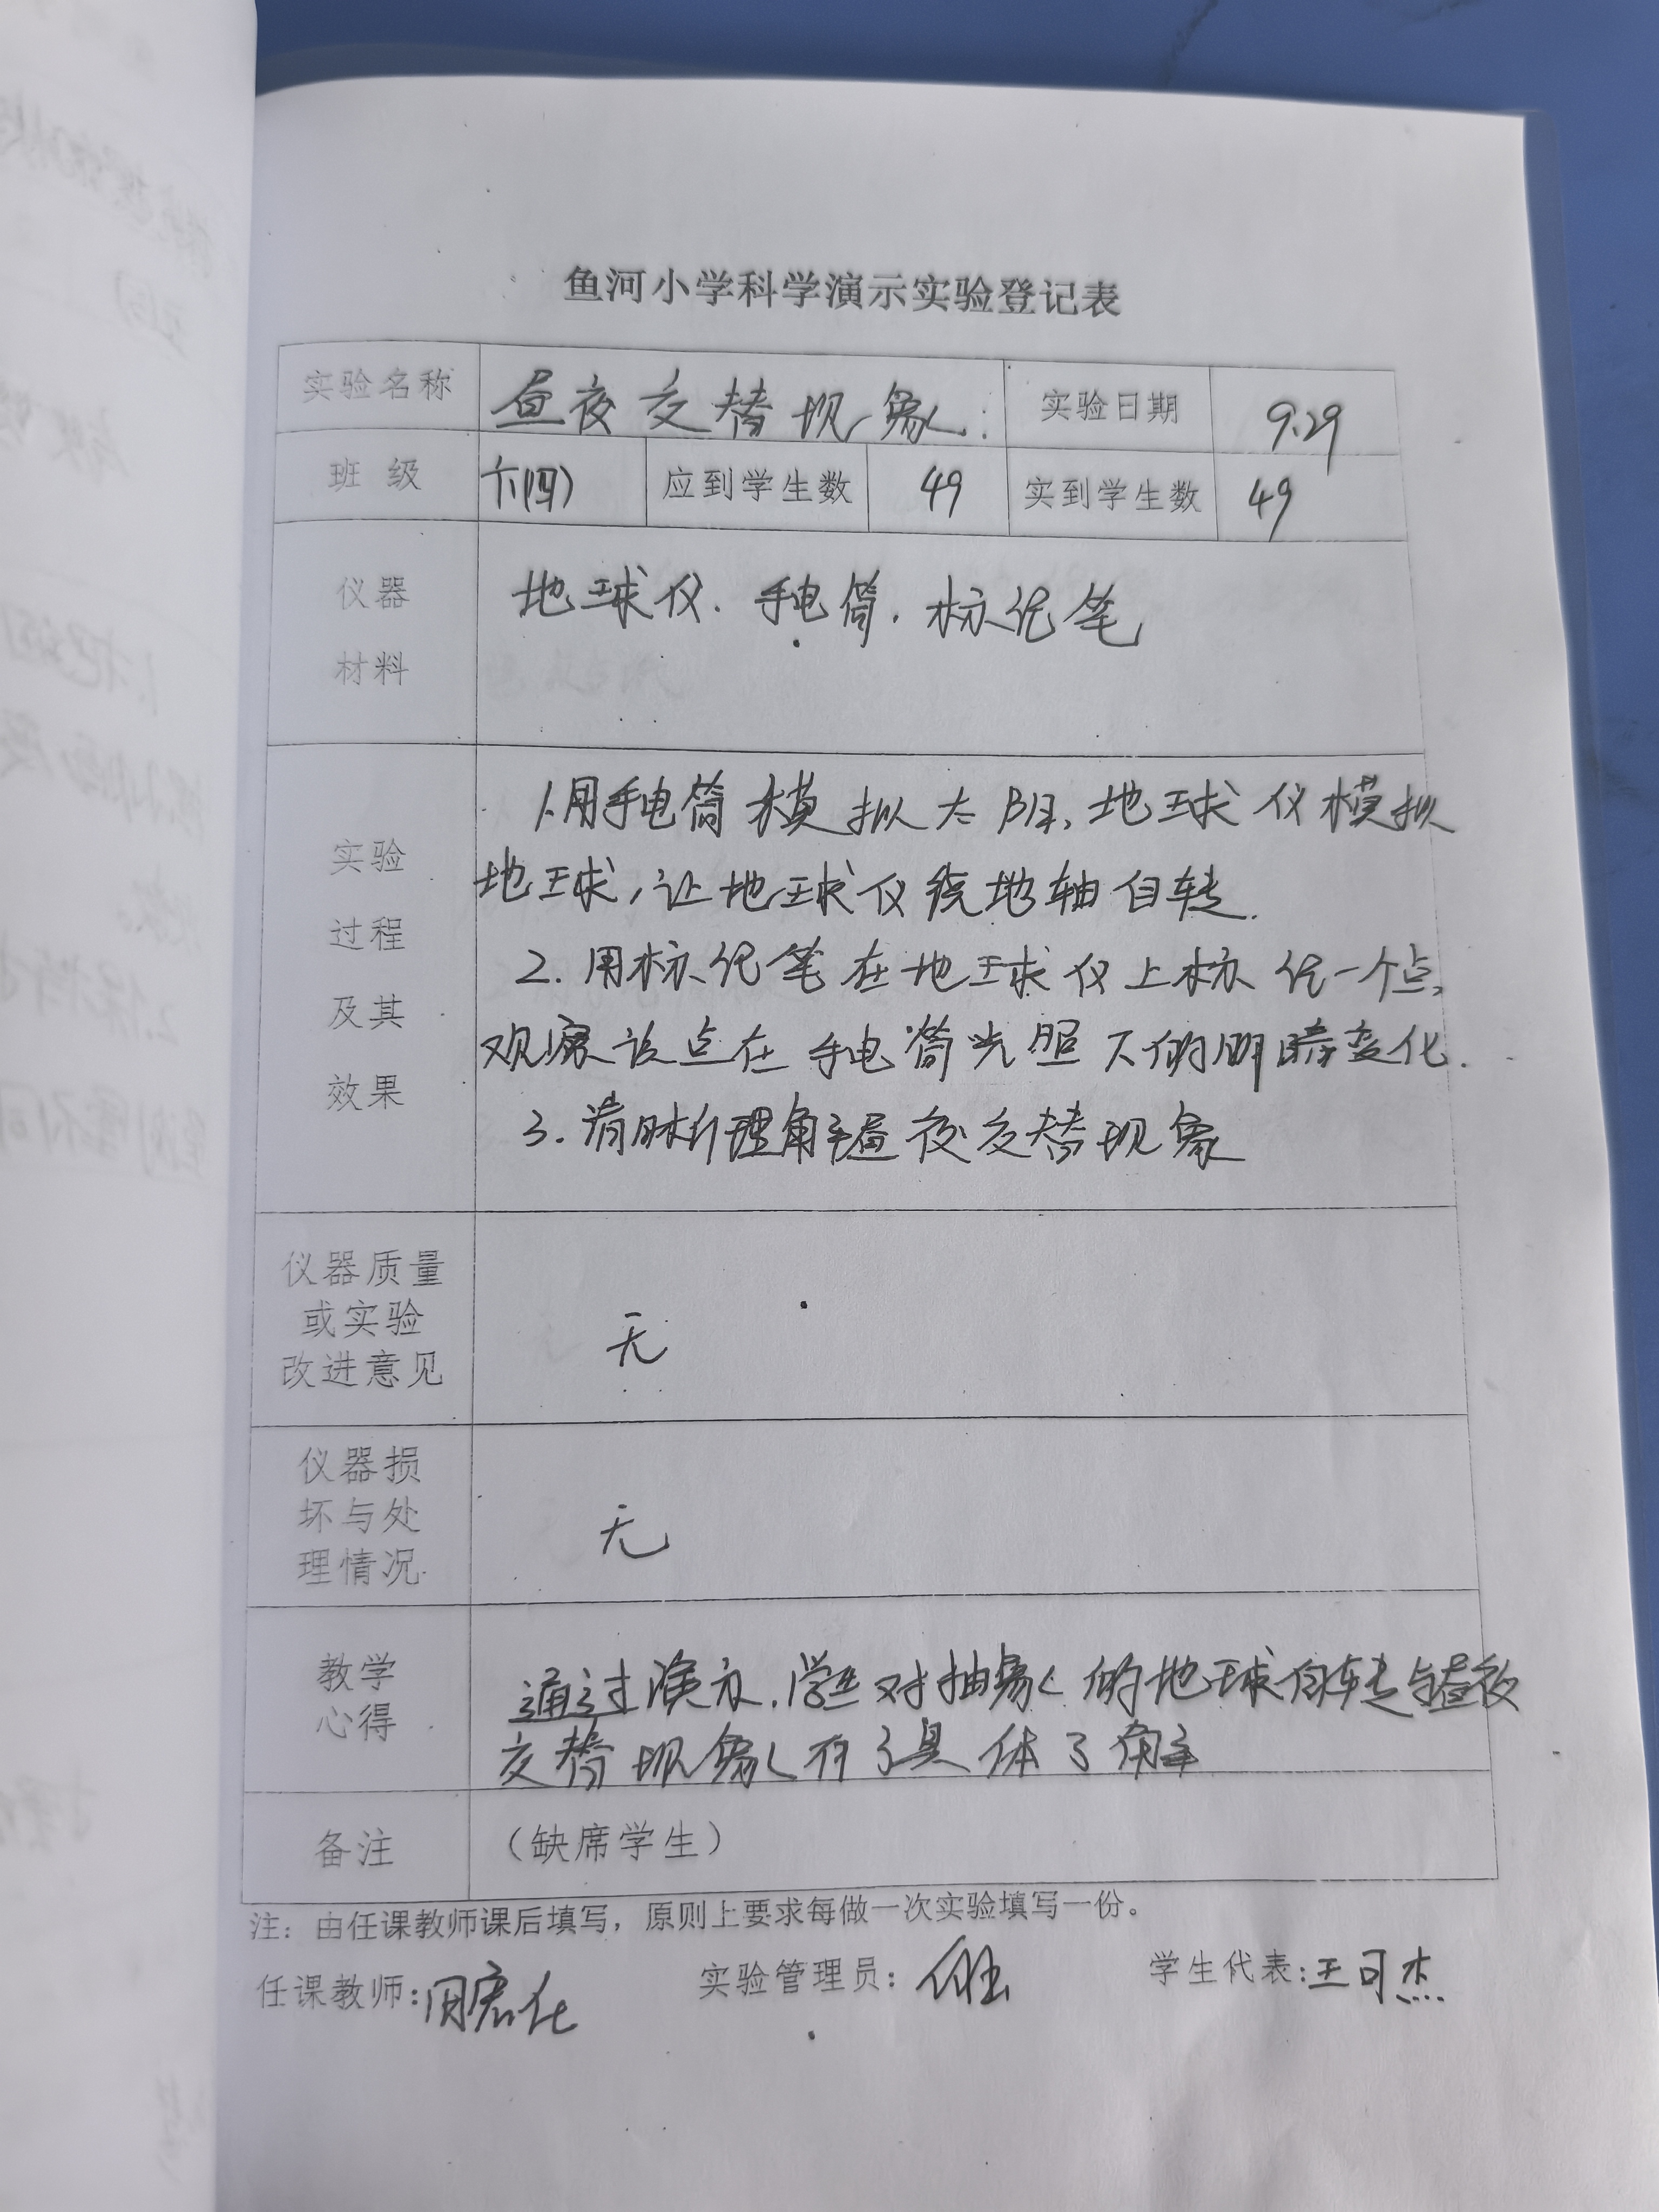 鱼河小学科学演示实验登记表
实验名称 昼夜交替现象. 实验日期 9.29
班 级 六(四) 应到学生数 49 实到学生数 49
仪器
材料
地球仪. 手电筒. 标记笔
实验
过程
及其
效果
1.用手电筒模拟太阳,地球仪模拟
地球,让地球仪绕地轴自转.
2.用标记笔在地球仪上标记一个点,
观察该点在手电筒光照下的明暗变化.
3.清晰理解昼夜交替现象
仪器质量
或实验
改进意见
无
仪器损
坏与处
理情况
无
教学
心得
通过演示,学生对抽象的地球自转与昼夜
交替现象有了具体了解
备注 (缺席学生)
注：由任课教师课后填写，原则上要求每做一次实验填写一份。
任课教师: 实验管理员: 学生代表:王可杰